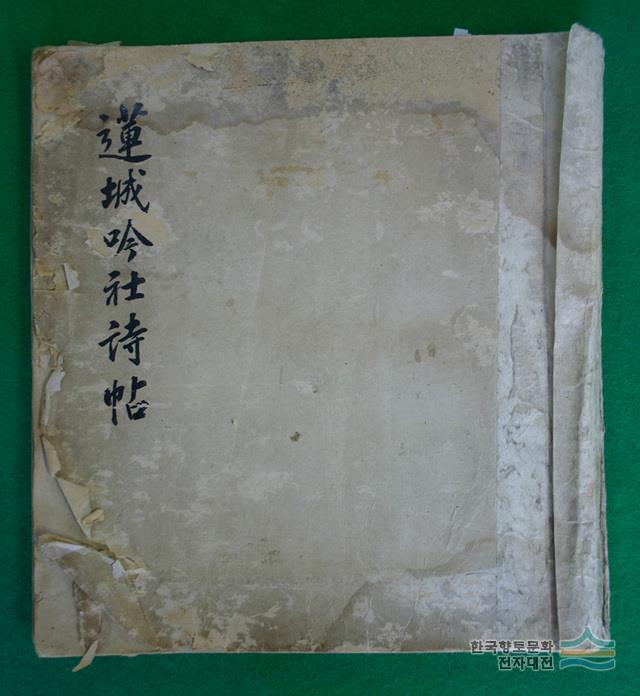 蓮城吟社詩帖
한국향토문화
전자대전